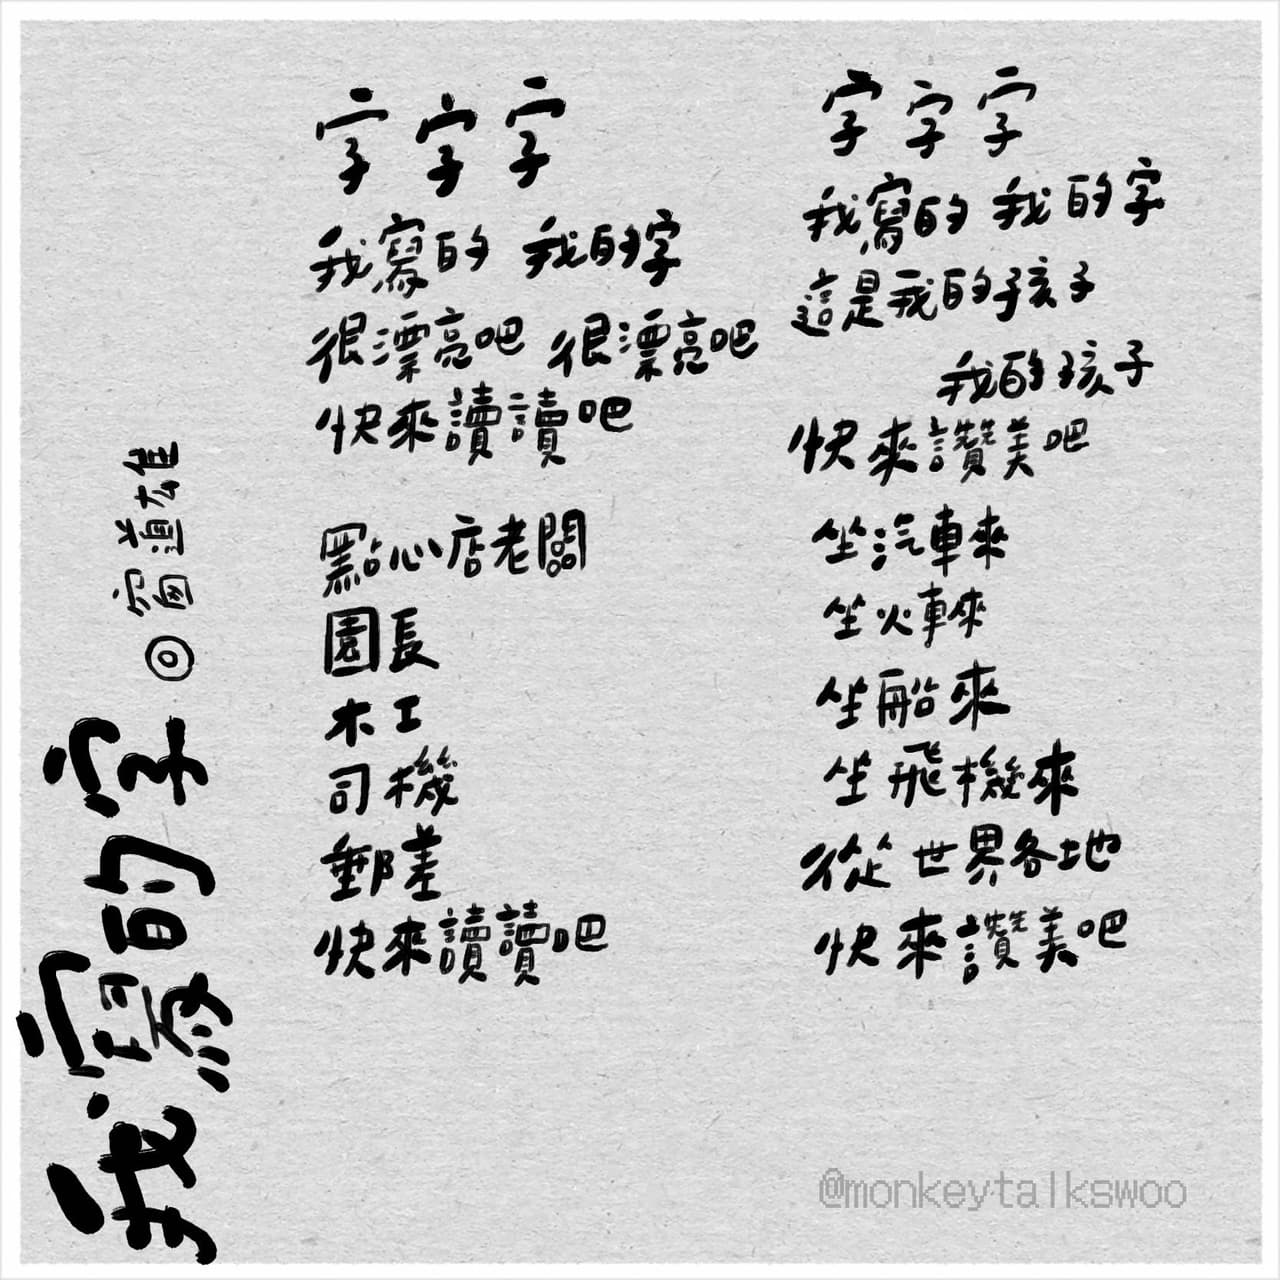 我寫的字◎窗道雄
字字字
我寫的 我的字
很漂亮吧 很漂亮吧
快來讀讀吧
點心店老闆
園長
木工
司機
郵差
快來讀讀吧
字字字
我寫的 我的字
這是我的孩子
我的孩子
快來讚美吧
坐汽車來
坐火車來
坐船來
坐飛機來
從世界各地
快來讚美吧
@monkeytalkswoo